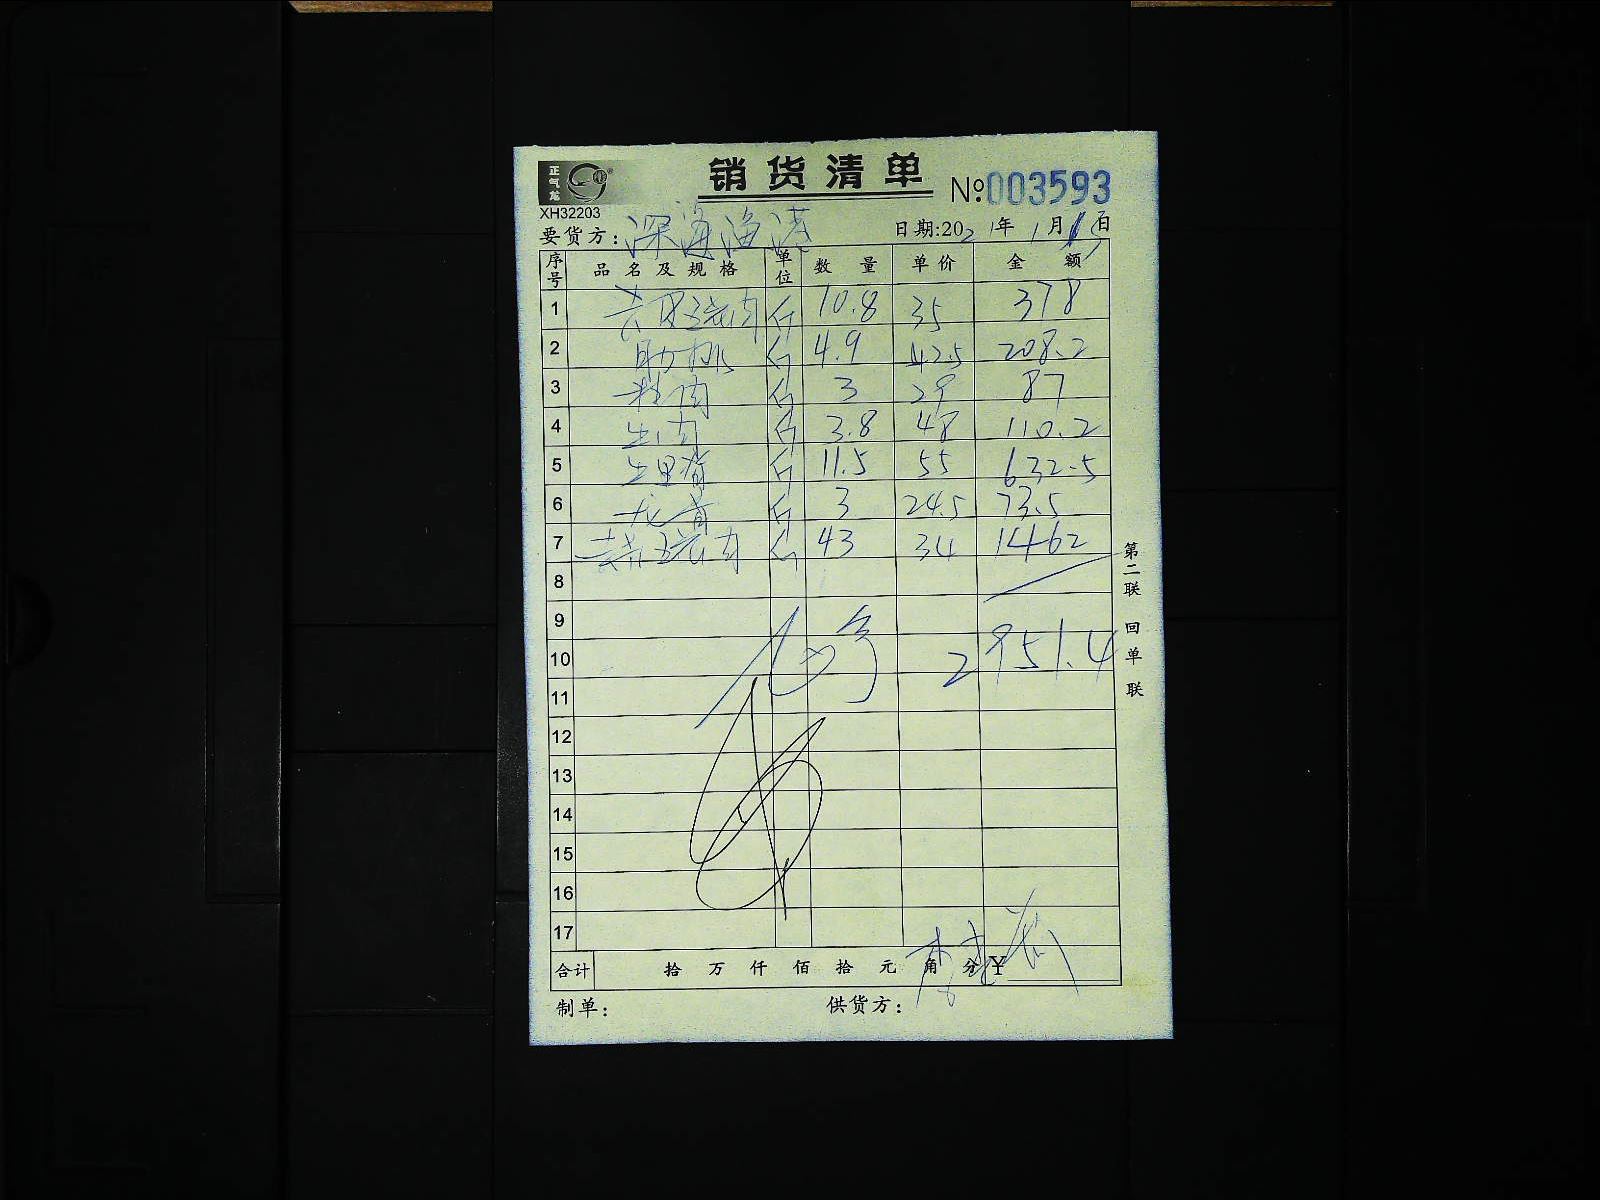 正气龙
销货清单
№003593
XH32203
要货方：深海渔港 日期:2021年1月15日
序号 品名及规格 单位 数量 单价 金额
1 去皮五花肉 斤 10.8 35 378
2 肋排 斤 4.9 42.5 208.2
3 精肉 斤 3 29 87
4 牛肉 斤 3.8 48 110.2
5 牛里脊 斤 11.5 55 632.5
6 龙骨 斤 3 24.5 73.5
7 五花肉 斤 43 34 1462
8
9
10 2951.4
11
12
13
14
15
16
17
合计 拾 万 仟 佰 拾 元 角 分 ¥
制单： 供货方：
第二联 回单联